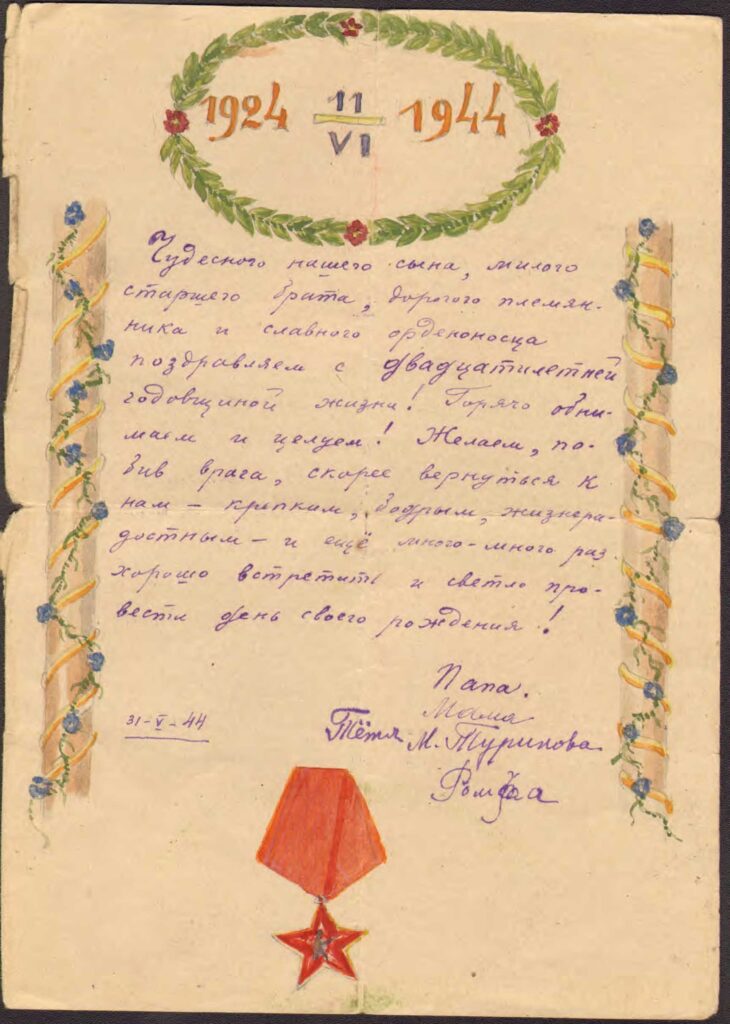 1924 11/VI 1944
Чудесного нашего сына, милого
старшего брата, дорогого племян-
ника и славного орденоносца
поздравляем с двадцатилетней
годовщиной жизни! Горячо обни-
маем и целуем! Желаем, по-
бив врага, скорее вернуться к
нам – крепким, бодрым, жизнера-
достным – и ещё много-много раз
хорошо встретить и светло про-
вести день своего рождения!
Папа.
Мама
31-V-44
Тётя М. Турикова